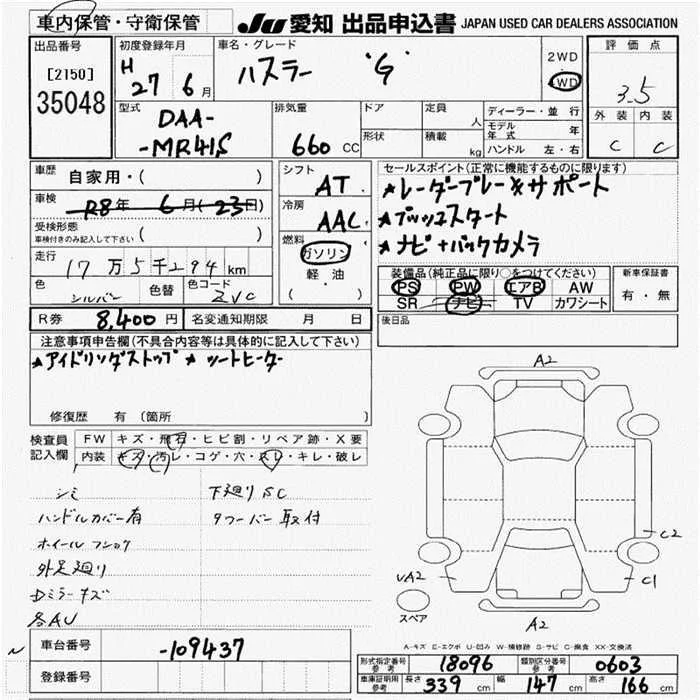 車内保管・守衛保管
JU 愛知 出品申込書 JAPAN USED CAR DEALERS ASSOCIATION
出品番号
[2150]
35048
初度登録年月
H 27 6月
車名・グレード
ハスラー 'G'
2WD
4WD
評価点
3.5
外装 内装
C C
型式
DAA-
-MR41S
排気量
660 CC
ドア
形状
定員 人
積載 kg
ディーラー・並行
モデル年式 年
ハンドル 左・右
車歴 自家用・( )
車検 R8年 6月(23日)
受検形態
車検付きのみ記入して下さい ( )
走行 17万5千294 km
色 シルバー 色替 色コード ZVC
シフト AT
冷房 AAC
燃料 ガソリン
軽・油
( )
セールスポイント(正常に機能するものに限ります)
★レーダーブレーキサポート
★プッシュスタート
★ナビ+バックカメラ
装備品(純正品に限り○をつけてください)
PS PW エアB AW
SR ナビ TV カワシート
新車保証書
有・無
R券 8,400円 名変通知期限 月 日
後日品
注意事項申告欄(不具合内容等は具体的に記入して下さい)
★アイドリングストップ ★シートヒーター
修復歴 有(箇所 )
検査員記入欄
FW キズ・飛石・ヒビ割・リペア跡・X要
内装 キズ・汚レ・コゲ・穴・スレ・キレ・破レ
シミ 下廻りSC
ハンドルカバー有 タワーバー取付
外足廻り
Dミラーキズ
各AU
A2
C2
UA2
C1
スペア
A2
車台番号 -109437
登録番号
A-キズ E-エクボ U-凹み W-補修跡 S-サビ C-腐食 XX-交換済
形式指定番号 参考 18096 類別区分番号 参考 0603
車庫証明用 参考 長さ 339 cm 幅 147 cm 高さ 166 cm